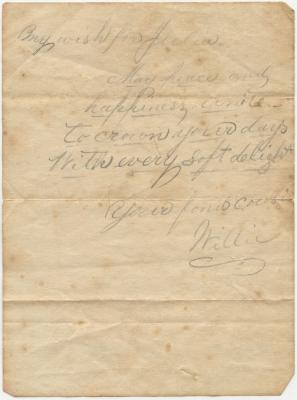 My wish for Julia.
May peace and
happiness unite
To crown your days
With every soft delight
Your fond Cous
Willie